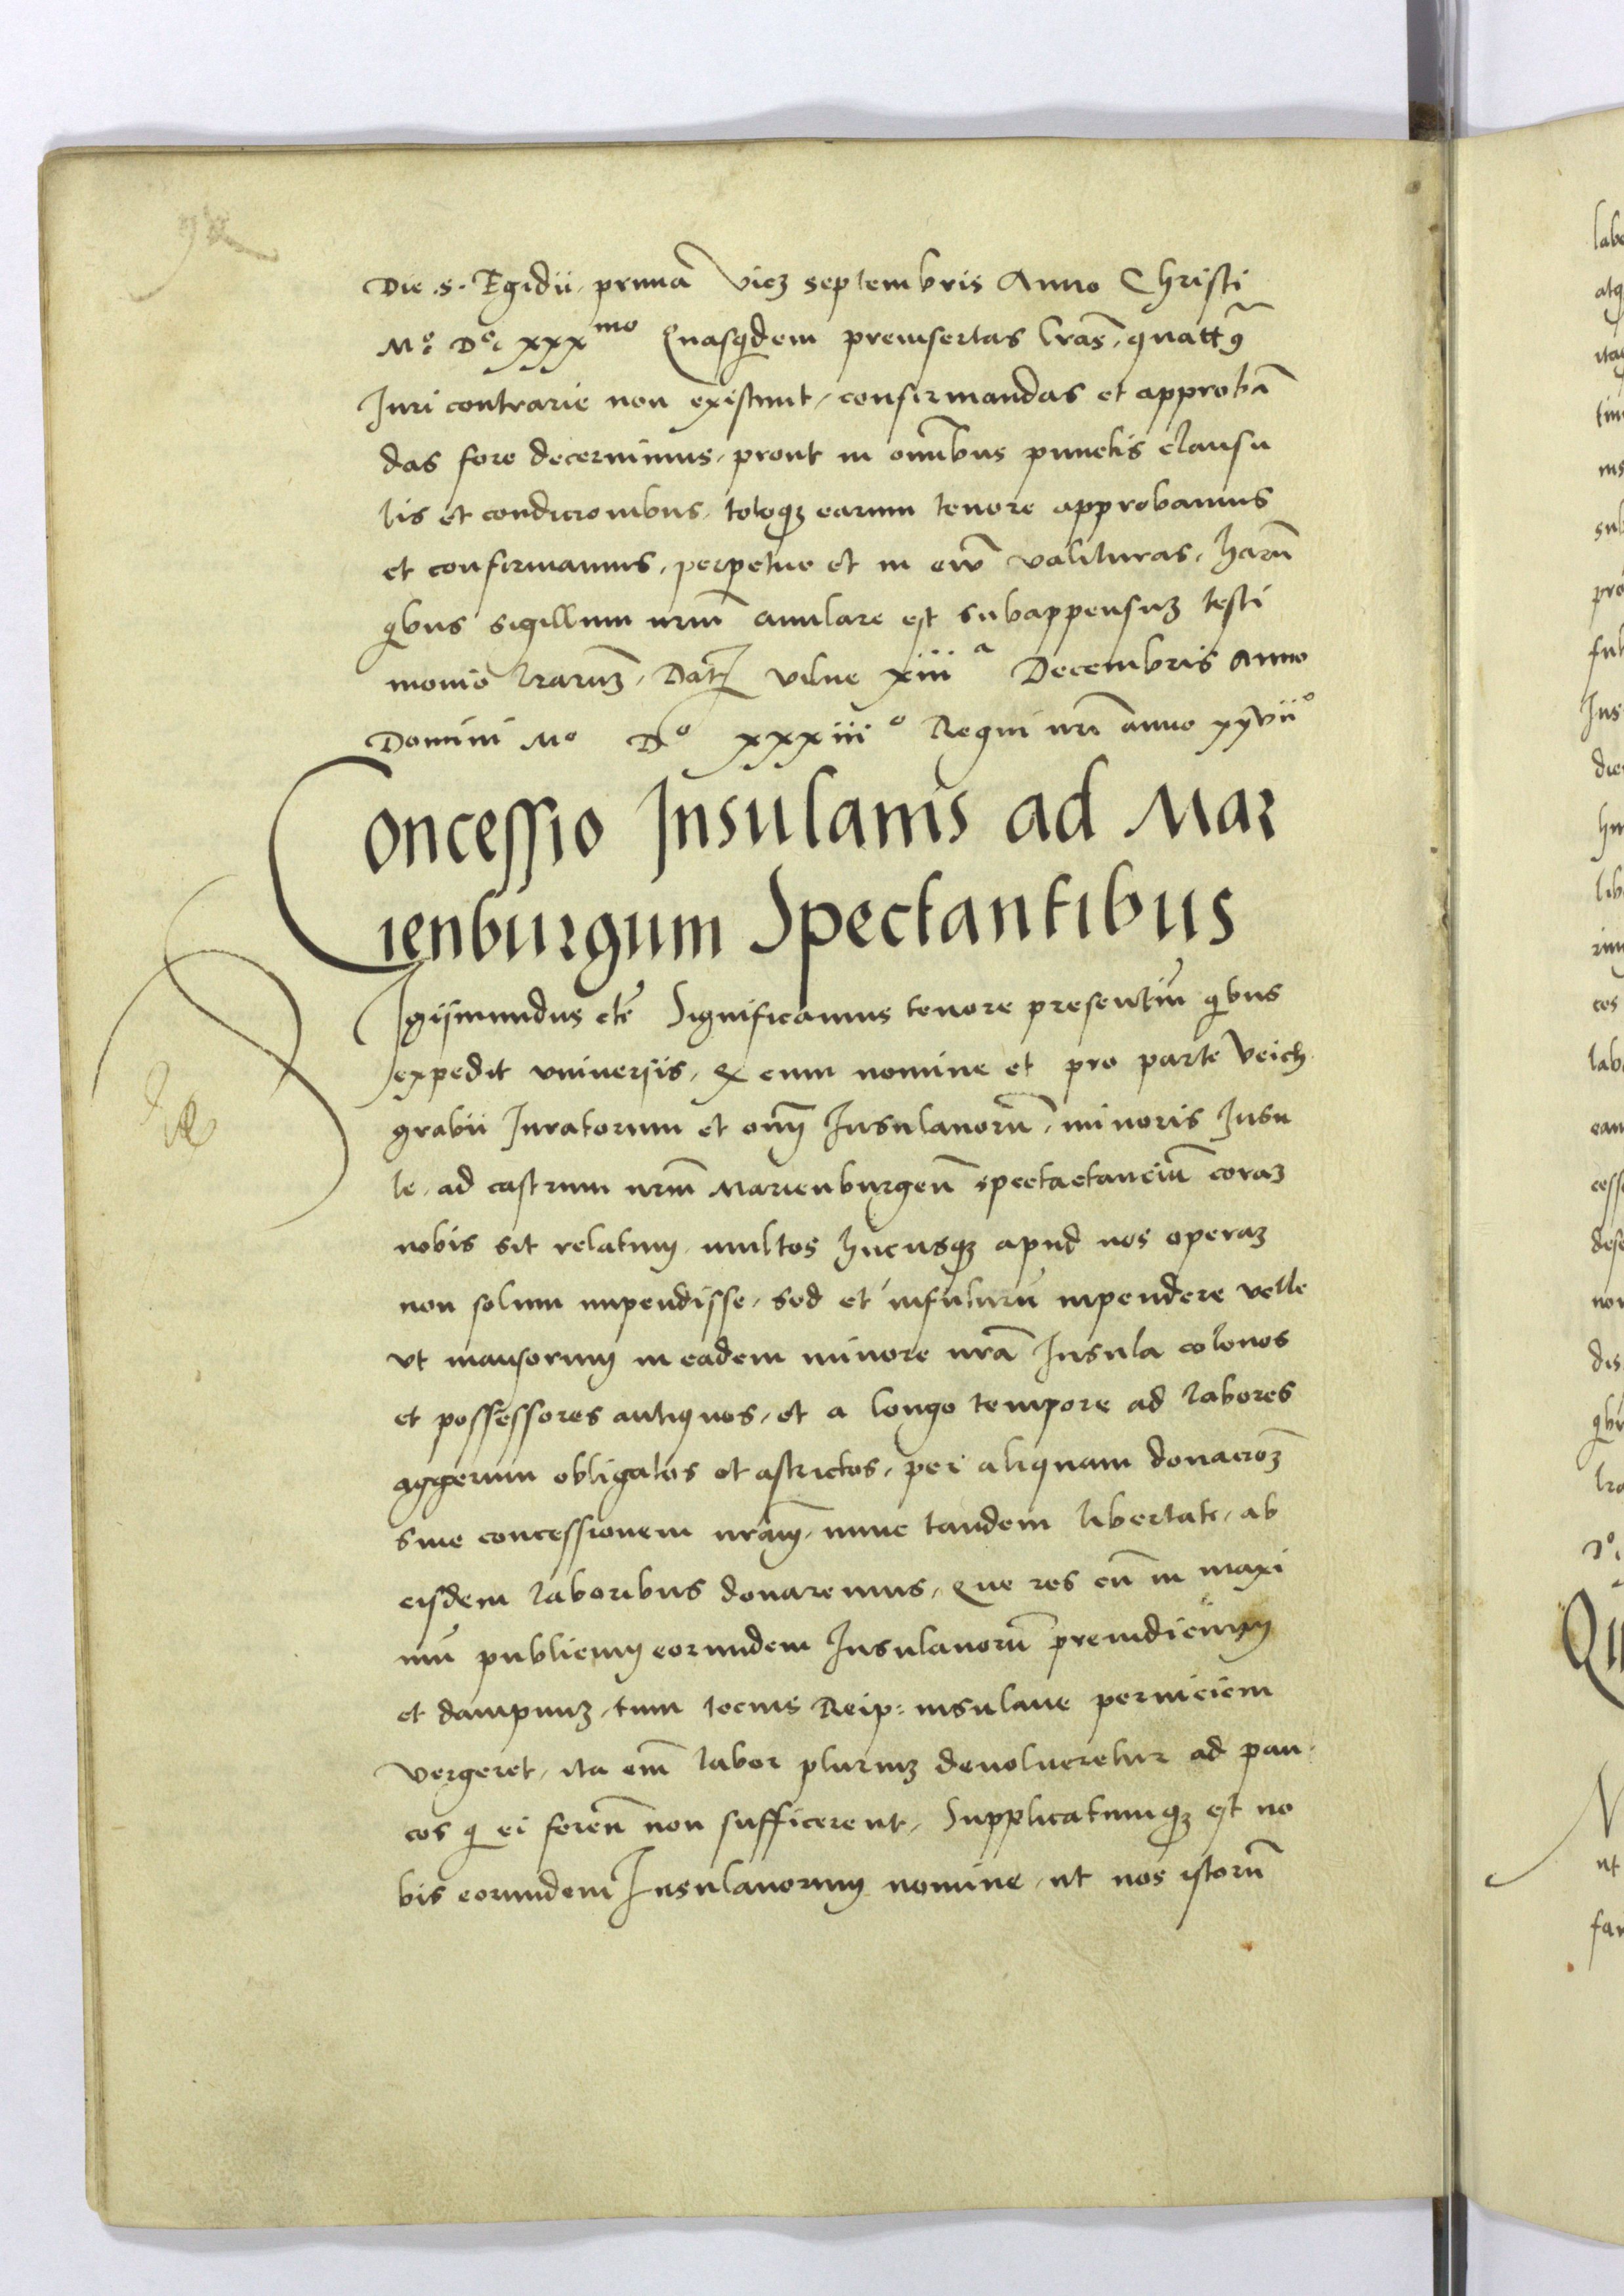 Die .s. Egidii, prima Vicz septembris Anno Christi
Mo: Do: xxxmo Quasqdem preinsertas lras, quatts
Iuri contrarie non existunt, confirmandas et approbā
das fore decernimus, prout in omībus punctis clausu
lis et condicionibus, totoqz earum tenore approbamus
et confirmamus, perpetue et in ewū valituras, harū
qbus sigillum nrm̄ anulare est subappensuz testi
monio lraruz, Datz vilne xiiia Decembris Anno
Domini Mo Do xxxiiio Regni nrī anno xxviio
Concessio Insulanis ad Mar
ienburgum Spectantibus
Sigijmundus etc̄ Significamus tenore presentiū qbus
expedit vniuersis, q cum nomine et pro parte Veich
grabii Iuratorum et omī Insulanorū, minoris Insu
le, ad castrum nrm̄ Marienburgen̄ spectaetanciū coraz
nobis sit relatum, multos hucusqz apud nos operaz
non solum impendisse, sed et infuturū inpendere velle
vt mansorum in eadem minore nrā Insula colonos
et possessores antiquos, et a longo tempore ad labores
aggerum obligatos et astrictos, per aliquam donacioz
siue concessionem nrām, nunc tandem libertate, ab
eisdem laboribus donaremus, Que res cū in maxi
mū publicum eorundem Insulanorū preiudicium
et dampnuz, tum tocius Reip: insulane perniciem
vergeret, ita em̄ labor plurimz deuolueretur ad pau
cos q ei feren̄ non sufficerent, Supplicatumqz est no
bis eorundem Insulanorum nomine, ut nos istorū